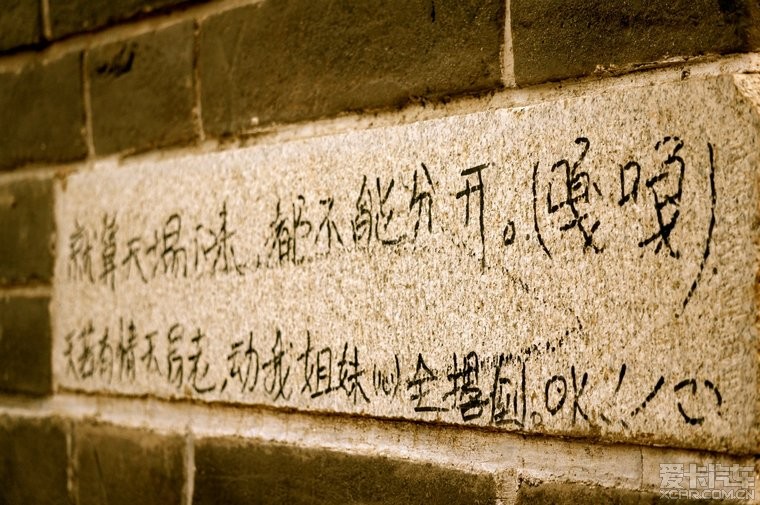 就算天塌下来,都不能分开。(嘎嘎)
天若有情天易老,动我姐妹(心)全撂倒。OK!
爱卡汽车
XCAR.COM.CN